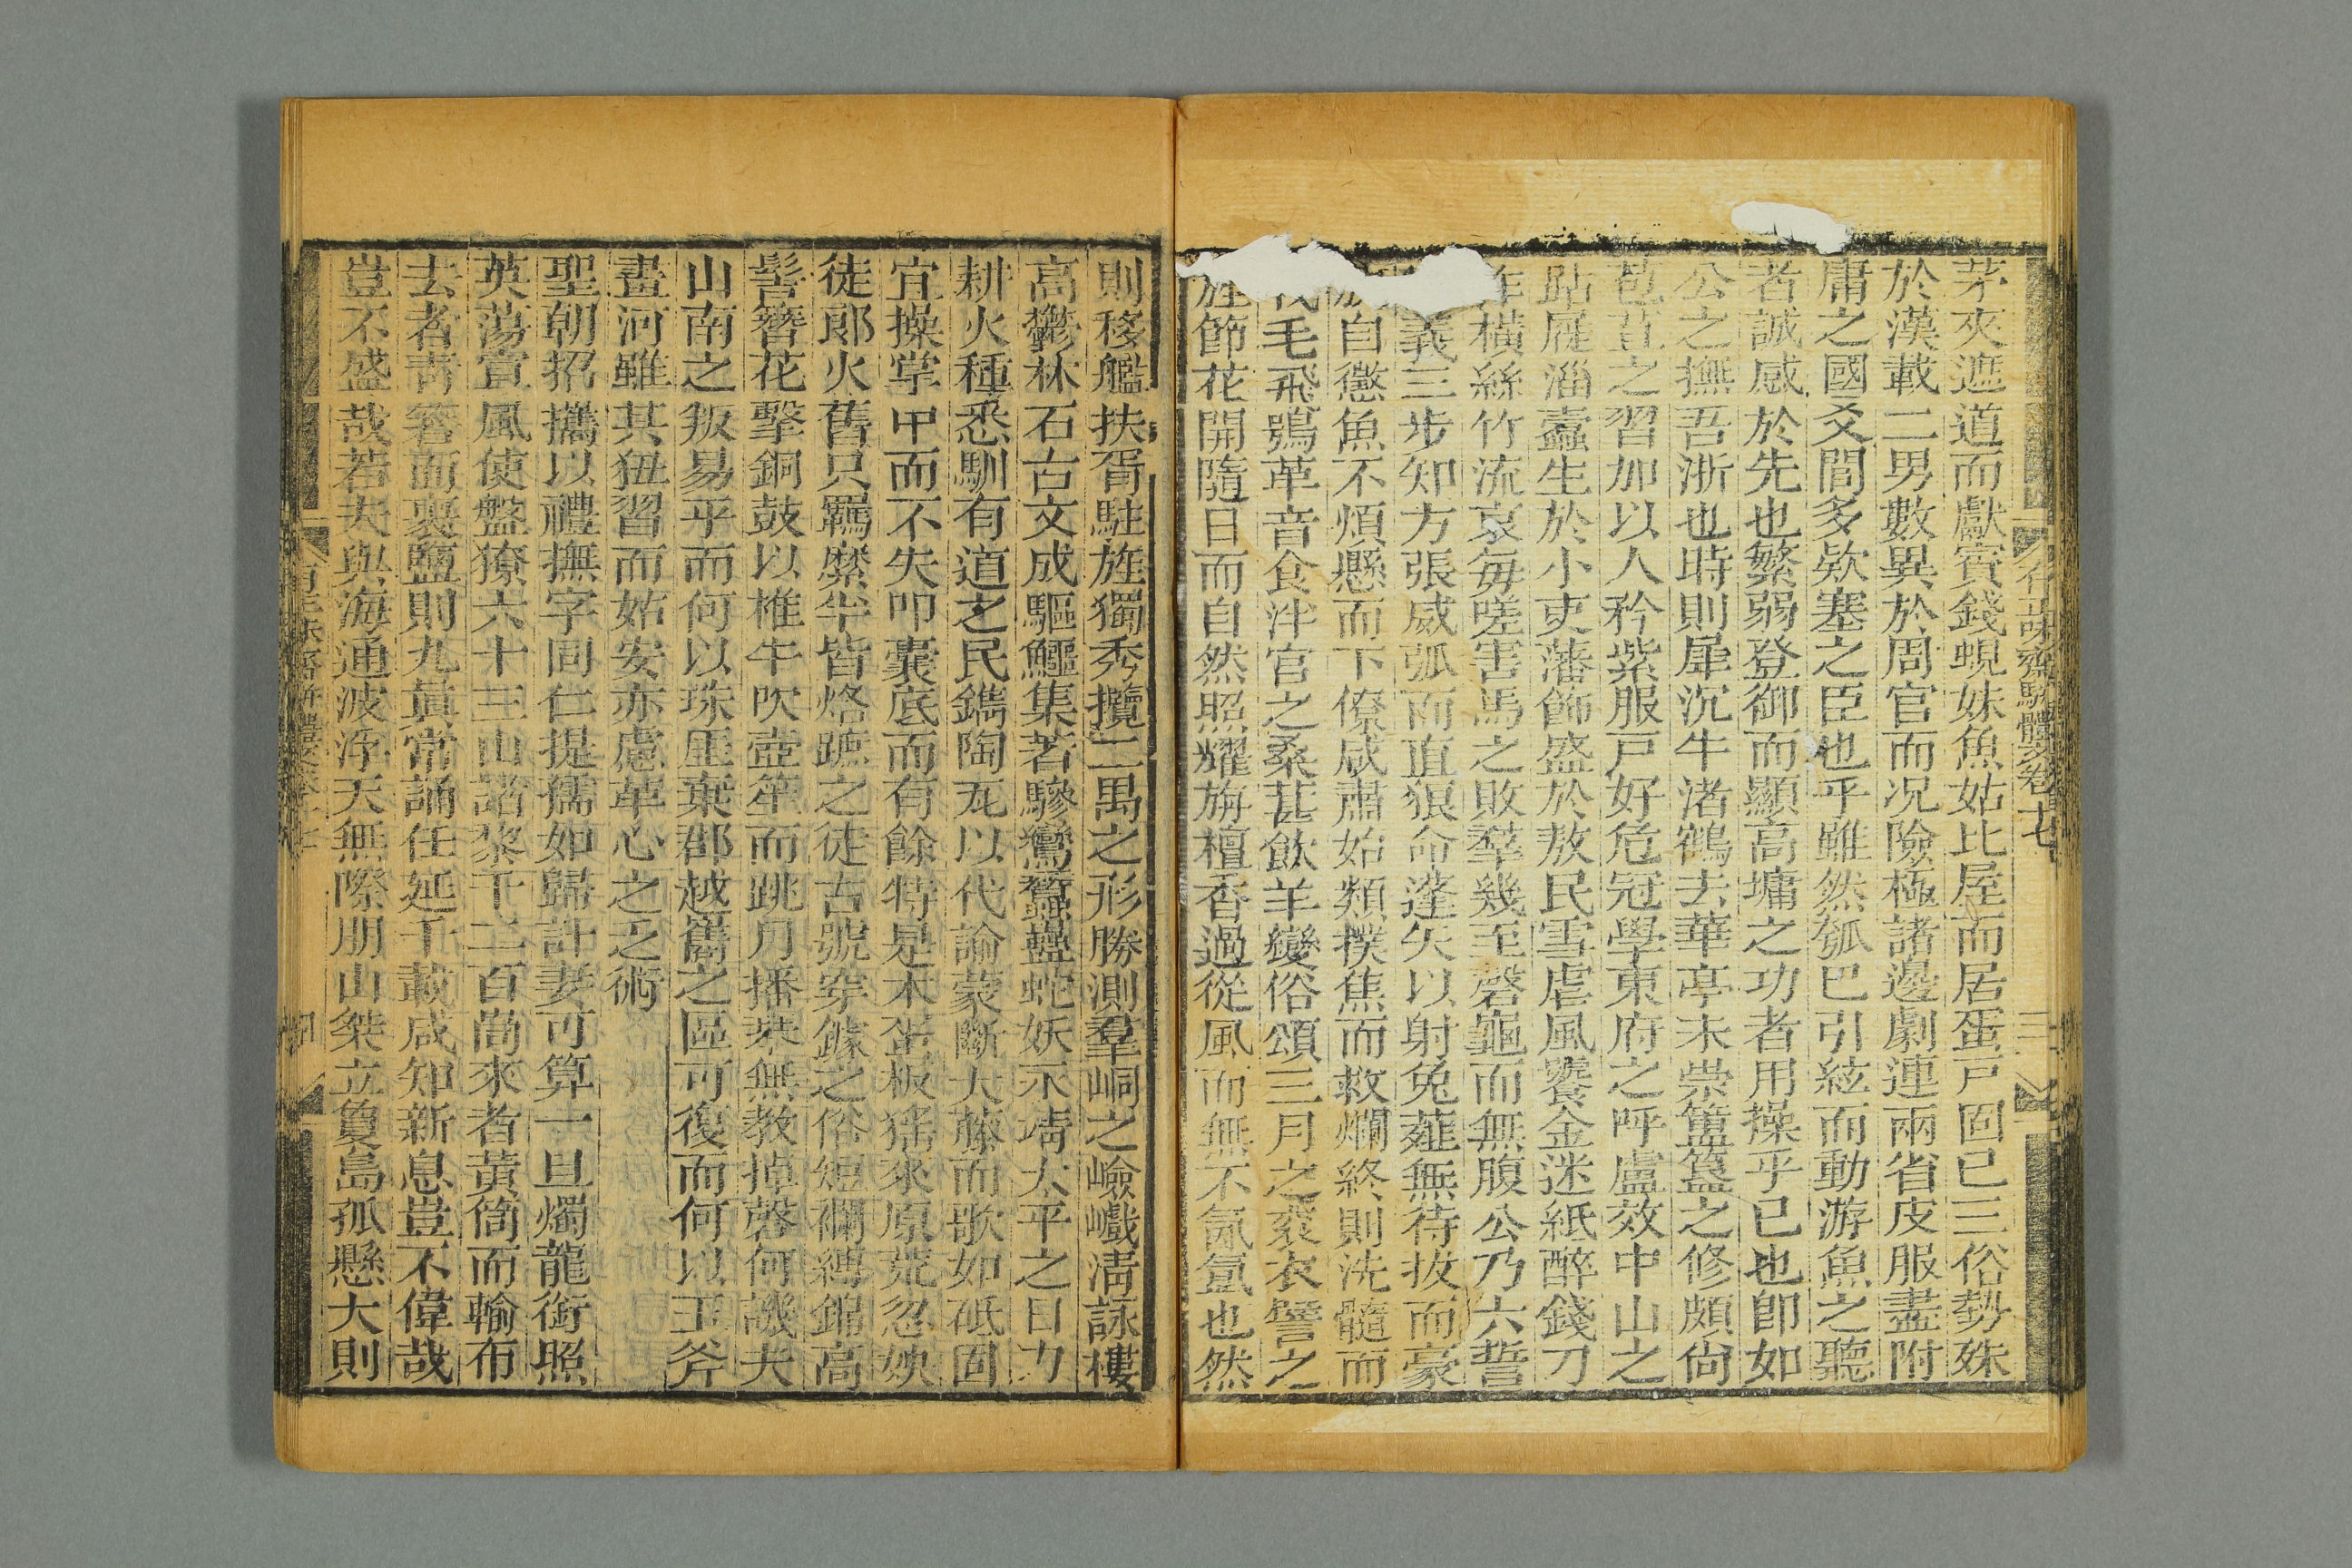 茅夾遮道而獻賨錢蜆妹魚姑比屋而居蛋戸固已三俗勢殊
於漢載二男數異於周官而况險極諸邊劇連兩省皮服盡附
庸之國爻閭多欵塞之臣也乎雖然瓠巴引絃而動游魚之聽
者誠感於先也繁弱登御而顯高墉之功者用操乎已也卽如
公之撫吾浙也時則犀沉牛渚鶴去華亭未崇簠簋之修頗尙
苞苴之習加以人矜紫服戸好危冠學東府之呼盧效中山之
跕屣淄蠧生於小吏藩飾盛於敖民雪虐風饕金迷紙醉錢刀
橫絲竹流哀每嗟害馬之敗羣幾至磬龜而無腹公乃六誓
義三步知方張威弧而直狼命蓬矢以射兔薤無待拔而豪
自懲魚不煩懸而下僚咸肅始類撲焦而救爛終則洗髓而
毛飛鴞革音食泮宫之桑葚飲羊變俗頌三月之衮衣譬之
旌節花開隨日而自然照耀旃檀香過從風而無不氤氳也然
行詁齋駢體文卷七
三
則移艦扶胥駐旌獨秀攬二禺之形勝測羣峒之嶮巇淸詠樓
高鬱林石古文成驅鱷集著驂鸞蠶蠱蛇妖不靖太平之日力
耕火種悉馴有道之民鐫陶瓦以代諭蒙斷大藤而歌如砥固
宜操掌甲而不失叩囊底而有餘特是木蛮板猺來原荒忽㛐
徒郞火舊只羈縻半皆烙蹠之徒古號穿鐻之俗短襴縛錦高
髻簪花擊銅鼓以椎牛吹壺笙而跳月播棻無教掉磬何譏夫
山南之叛易乎而何以珠厓棄郡越嶲之區可復而何以玉斧
畫河雖其狃習而姑安亦慮革心之乏術
聖朝招攜以禮撫字同仁提孺如歸計妻可算一旦燭龍銜照
英蕩宣風使盤獠六十三山諸黎千二百崗來者黃筒而輸布
去者靑箬而裹鹽則九眞常誦任延千載咸知新息豈不偉哉
豈不盛哉若夫與海通波浮天無際朋山桀立夐島孤懸大則
四